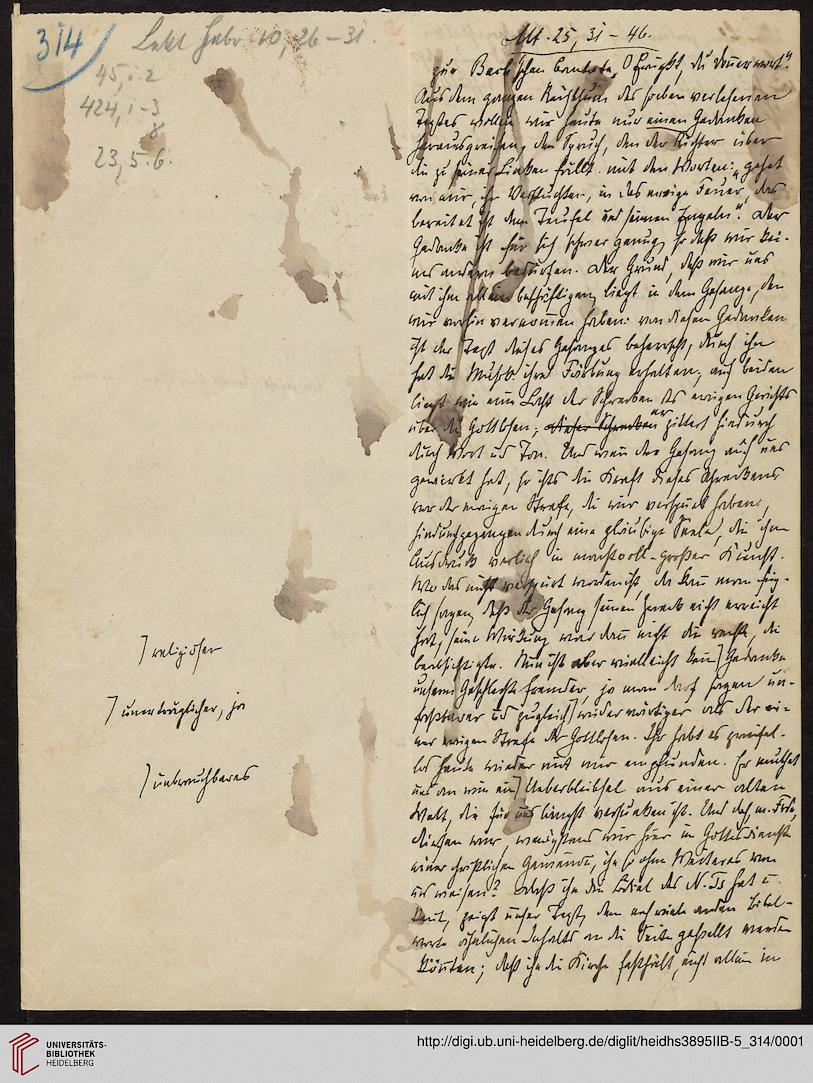 314
Lekt Hebr 10, 26-31.
45, 1-2
424, 1-3
8
23, 5. 6.
Mt. 25, 31-46.
zur Bach'schen Cantate „O Ewigkeit, du Donnerwort“.
Aus dem ganzen Reichthum des soeben verlesenen
Textes wollen wir heute nur einen Gedanken
herausgreifen, den Spruch, den der Richter über
die zu seiner Linken fällt mit den Worten: „gehet
von mir, ihr Verfluchten, in das ewige Feuer, das
bereitet ist dem Teufel und seinen Engeln“. Der
Gedanke ist für sich schwer genug, so daß wir kei-
nes andern bedürfen. Der Grund, daß wir uns
mit ihm allein beschäftigen, liegt in dem Gesange, den
wir vorhin vernommen haben: von diesem Gedanken
ist der Text dieses Gesanges beherrscht, durch ihn
hat die Musik ihre Färbung erhalten; auf beiden
liegt wie eine Last der Schrecken des ewigen Gerichts
über die Gottlosen; dieser Schrecken er zittert hindurch
durch Wort und Ton. Und wenn der Gesang auf uns
gewirkt hat, so ists die Kraft dieses Schreckens
vor der ewigen Strafe, die wir verspürt haben,
hindurchgegangen durch eine gläubige Seele, die ihm
Ausdruck verlieh in machtvoll-großer Kunst.
Wo das nicht verspürt worden ist, da kann man füg-
lich sagen, daß der Gesang seinen Zweck nicht erreicht
hat, seine Wirkung war dann nicht die rechte, die
beabsichtigte. Nun ist aber vielleicht kein Gedanke
unserm Geschlecht fremder, ja man darf sagen un-
faßbarer und zugleich widerwärtiger als der ei-
ner ewigen Strafe der Gottlosen. Ihr habt es zweifel-
los heute wieder mit mir empfunden. Er muthet
uns an wie ein Ueberbleibsel aus einer alten
Welt, die für uns längst versunken ist. Und doch, m. Frde,
dürfen wir, wenigstens wir hier im Gottesdienste
einer christlichen Gemeinde, ihn so ohne Weiteres von
uns weisen? Daß ihn die Bibel des N. Ts hat u.
kennt, zeigt unser Text, dem noch viele andere Bibel-
worte ähnlichen Inhalts an die Seite gestellt werden
könnten; daß ihn die Kirche festhält, nicht allein in
religiöser
unerträglicher, ja
unbrauchbares
UNIVERSITÄTS-
BIBLIOTHEK
HEIDELBERG
http://digi.ub.uni-heidelberg.de/diglit/heidhs3895IIB-5_314/0001